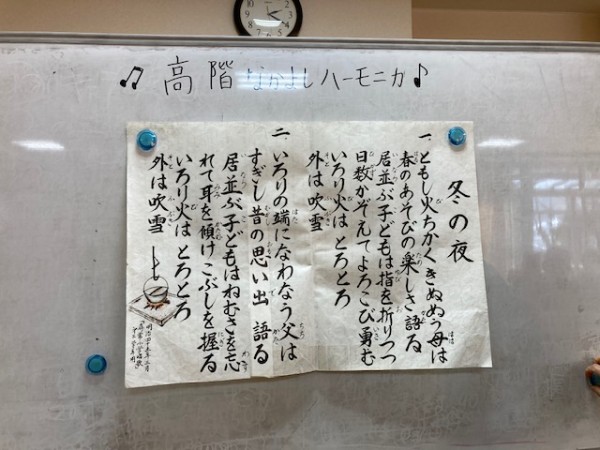 ♫ 高階なかよしハーモニカ♪
冬の夜
一、ともし火ちかくきぬぬう母は
春のあそびの楽しさ語る
居並ぶ子どもは指を折りつつ
日数かぞえてよろこび勇む
いろり火は とろとろ
外は吹雪
二、いろりの端になわなう父は
すぎし昔の思い出 語る
居並ぶ子どもはねむさを忘
れて耳を傾け こぶしを握る
いろり火は とろとろ
外は吹雪
明治四十五年三月